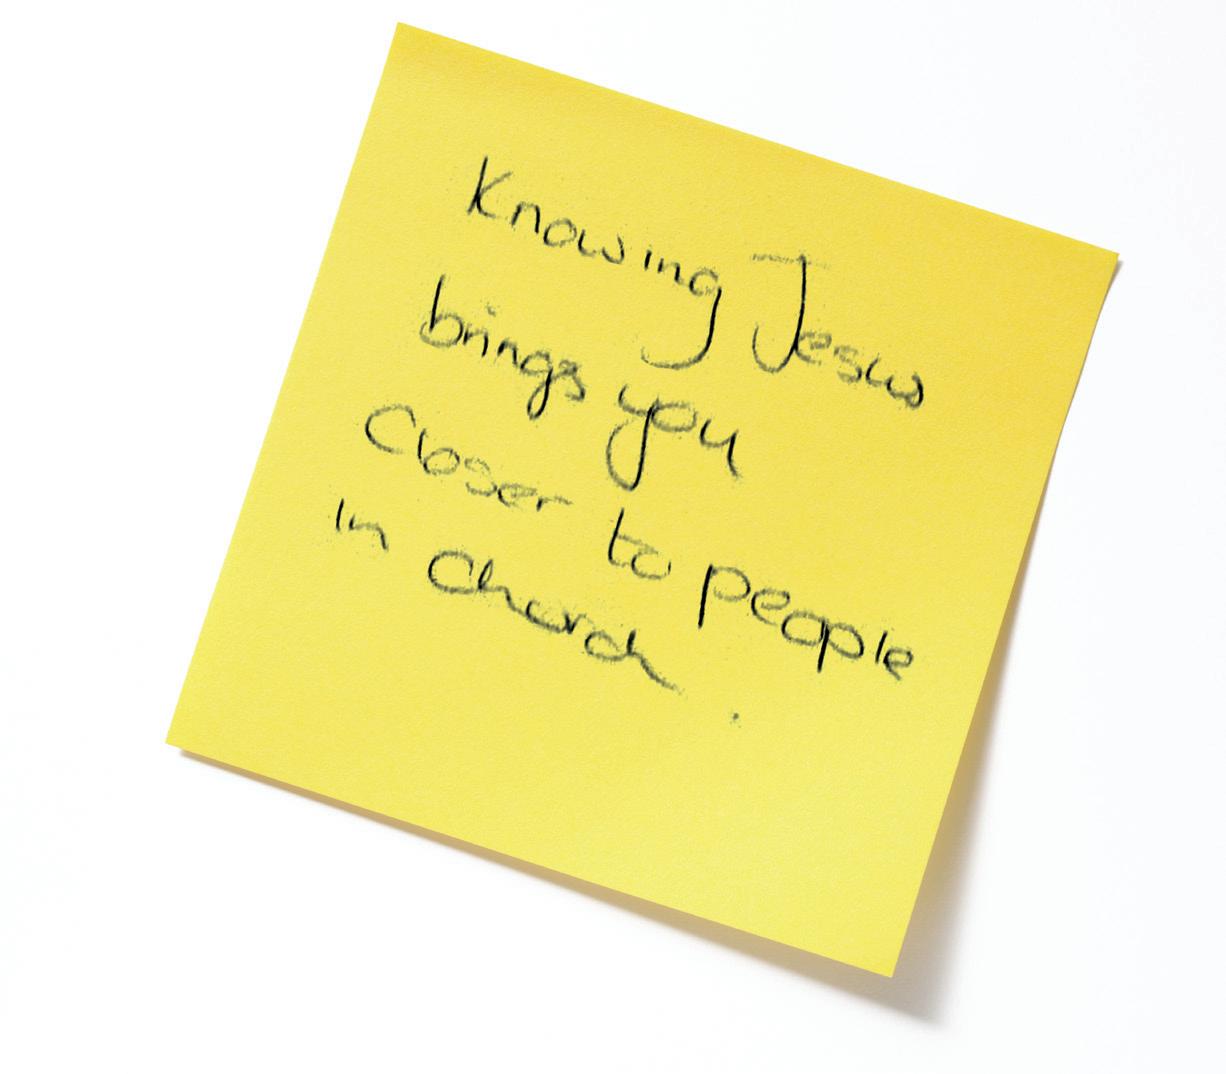 Knowing Jesus
brings you
Closer to people
in church.